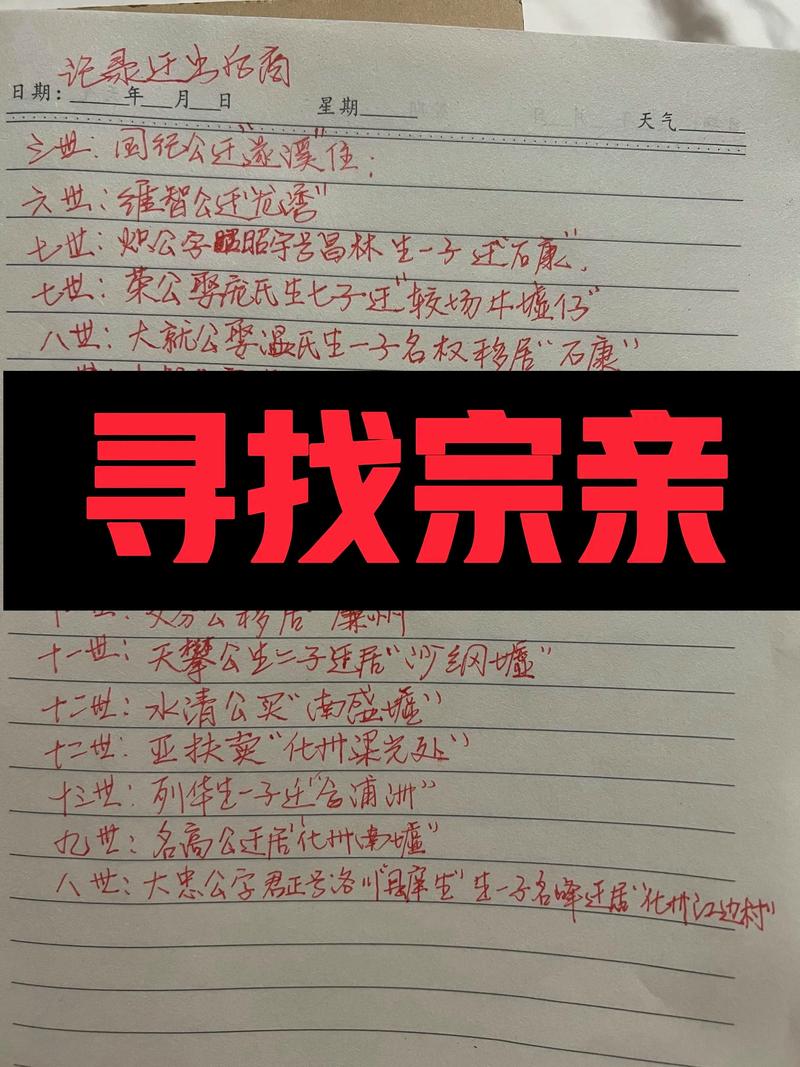 记录迁出后裔
日期：____年__月__日 星期____ 天气____
三世：国纪公迁"遂溪"住；
六世：维智公迁"龙湾"
七世：炽公字昭宇号昌林生一子迁"石康"．
七世：荣公娶庞氏生七子迁"较场牛墟仔"
八世：大就公娶温氏生一子名权移居"石康"
寻找宗亲
公移居"廉州"
十一世：天攀公生二子迁居"沙纲墟"
十二世：水清公买"南盛墟"
十二世：亚扶卖"化州梁光处"
十三世：列华生一子迁"合浦洲"
九世：名高公迁居"化州南墟"
八世：大忠公字君正号洛川"县庠生"生一子名峰迁居"化州江边村"